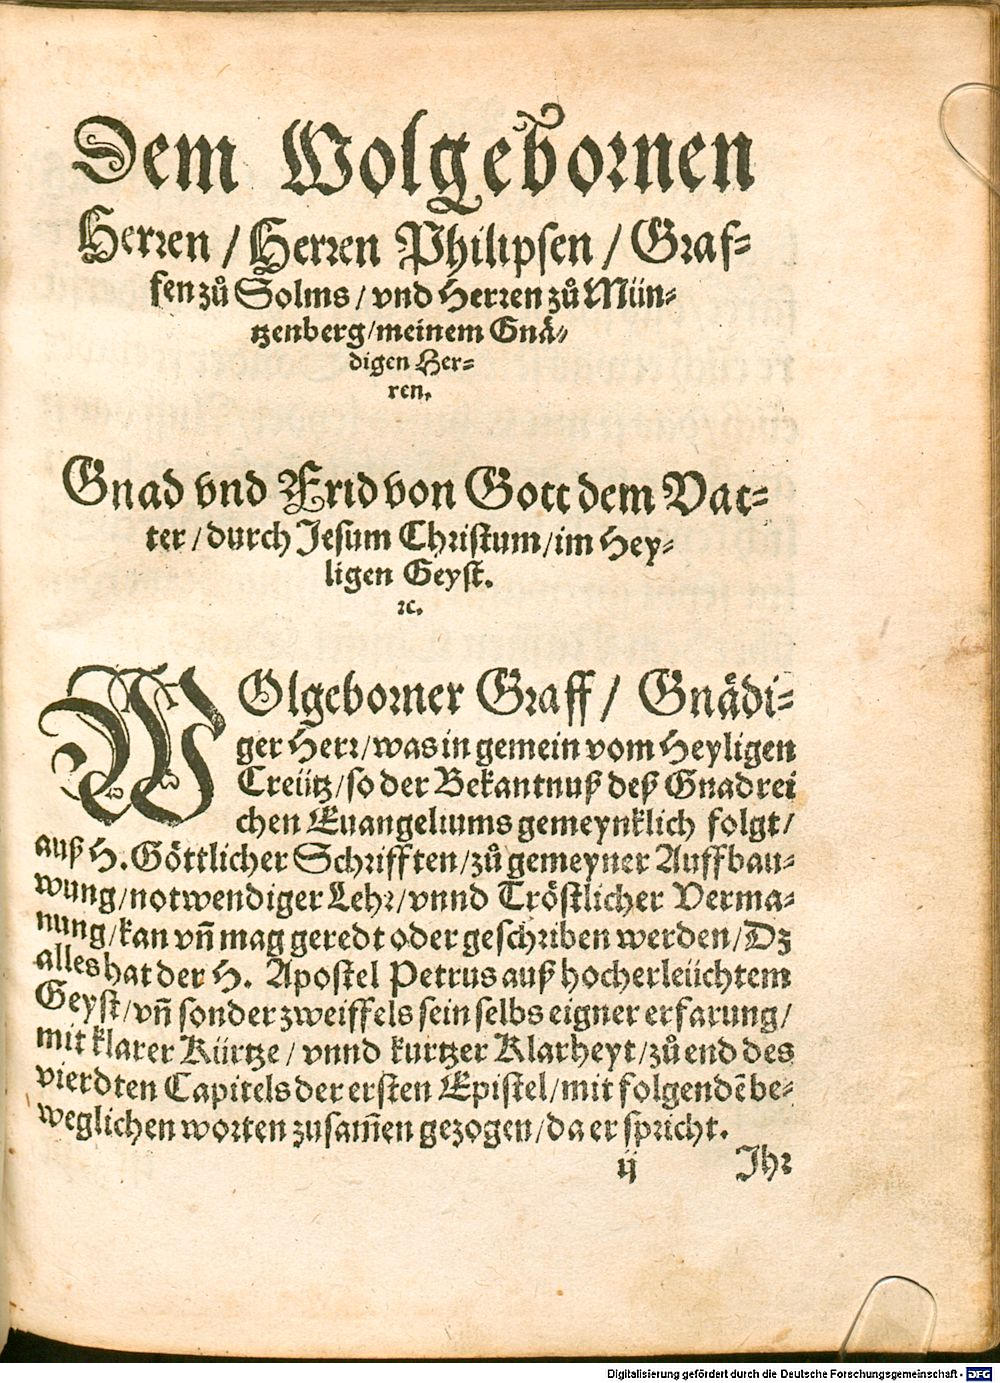 Dem Wolgebornen
Herren / Herren Philipsen / Graf⸗
fen zů Solms / vnd Herren zů Mün⸗
tzenberg / meinem Gnä⸗
digen Her⸗
ren.
Gnad vnd Frid von Gott dem Vat⸗
ter / durch Jesum Christum / im Hey⸗
ligen Geyst.
ꝛc.
WOlgeborner Graff / Gnädi⸗
ger Herr / was in gemein vom Heyligen
Creütz / so der Bekantnuß deß Gnadrei
chen Euangeliums gemeynklich folgt /
auß H. Göttlicher Schrifften / zů gemeyner Auffbau⸗
wung / notwendiger Lehr / vnnd Tröstlicher Verma⸗
nung / kan vñ mag geredt oder geschriben werden / Dz
alles hat der H. Apostel Petrus auß hocherleüchtem
Geyst / vñ sonder zweiffels sein selbs eigner erfarung /
mit klarer Kürtze / vnnd kurtzer Klarheyt / zů end des
vierdten Capitels der ersten Epistel / mit folgendẽ be⸗
weglichen worten zusam̃en gezogen / da er spricht.
ij Ihr
Digitalisierung gefördert durch die Deutsche Forschungsgemeinschaft - DFG